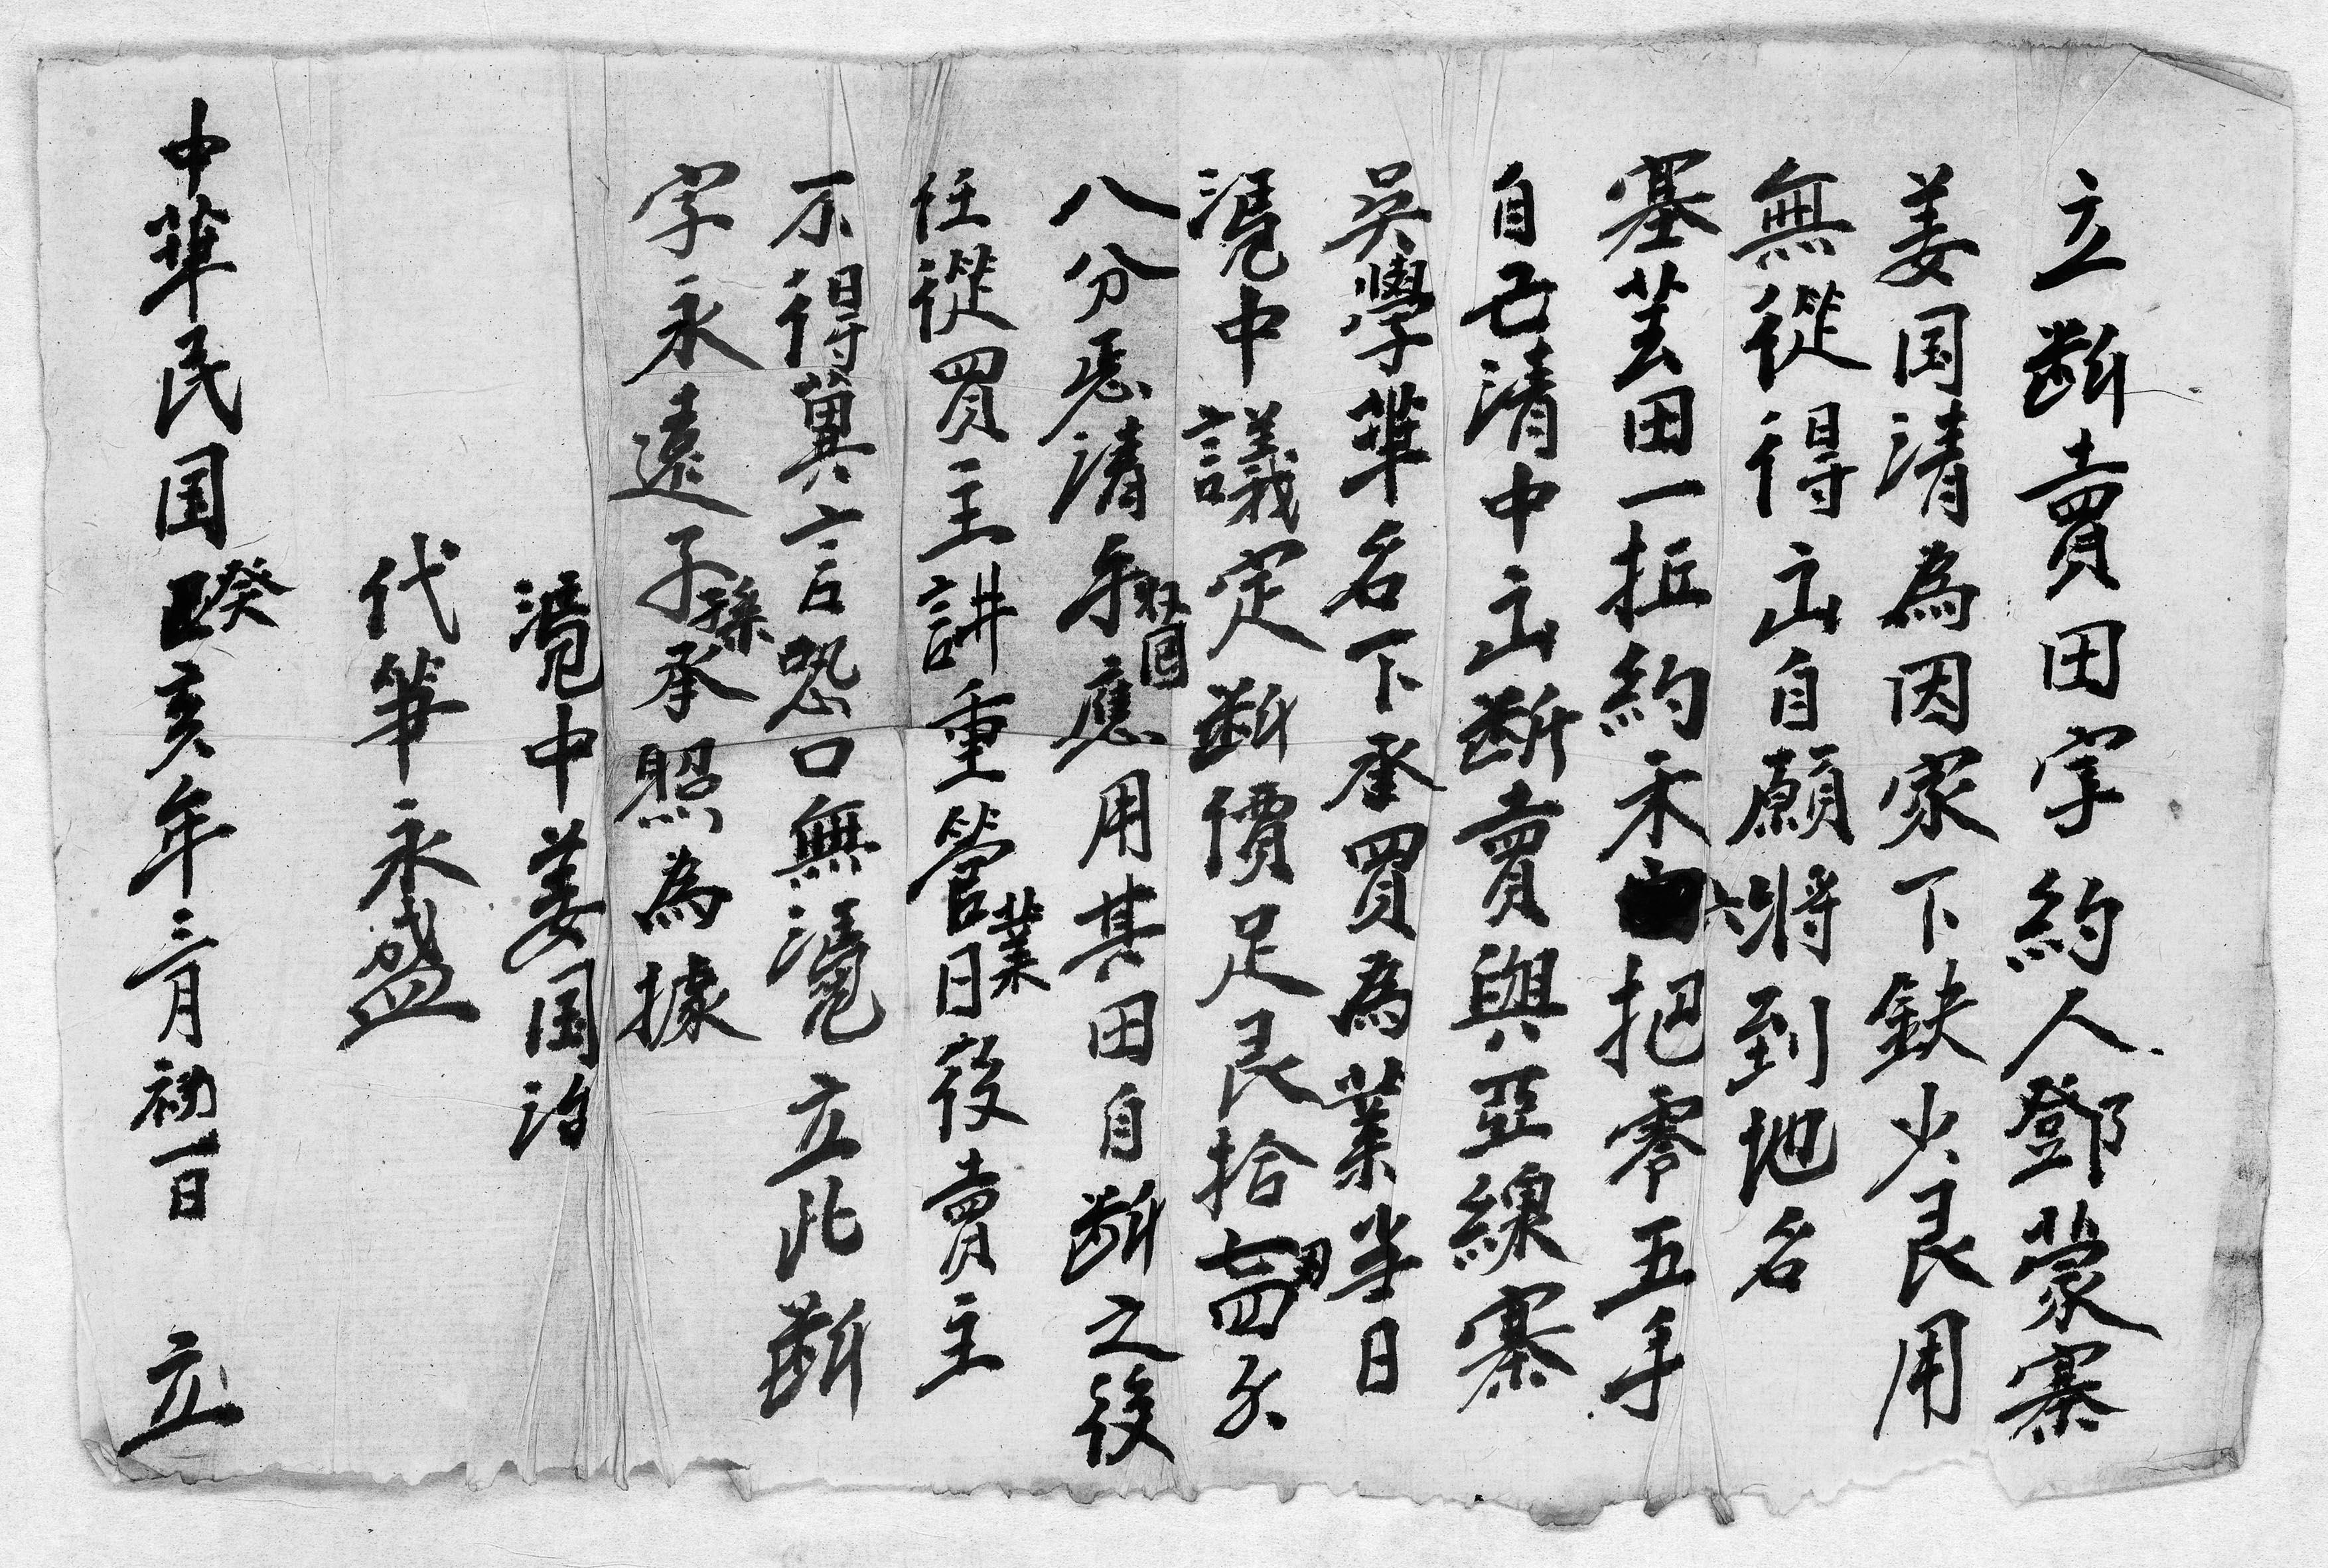 立断賣田字約人鄧蒙寨
姜国清為因家下缺少艮用
無從得出自願將到地名
塞芸田一坵約禾六把零五手
自己清中出断賣與亞線寨
吳學華名下承買為業當日
憑中議定断價足艮拾七両四分
八分悉清手收回應用其田自断之後
任從買主耕重管業日後賣主
不得異言恐口無憑立此断
字永遠子孫承照為據
憑中姜国治
代筆永盛
中華民国癸亥年三月初一日 立